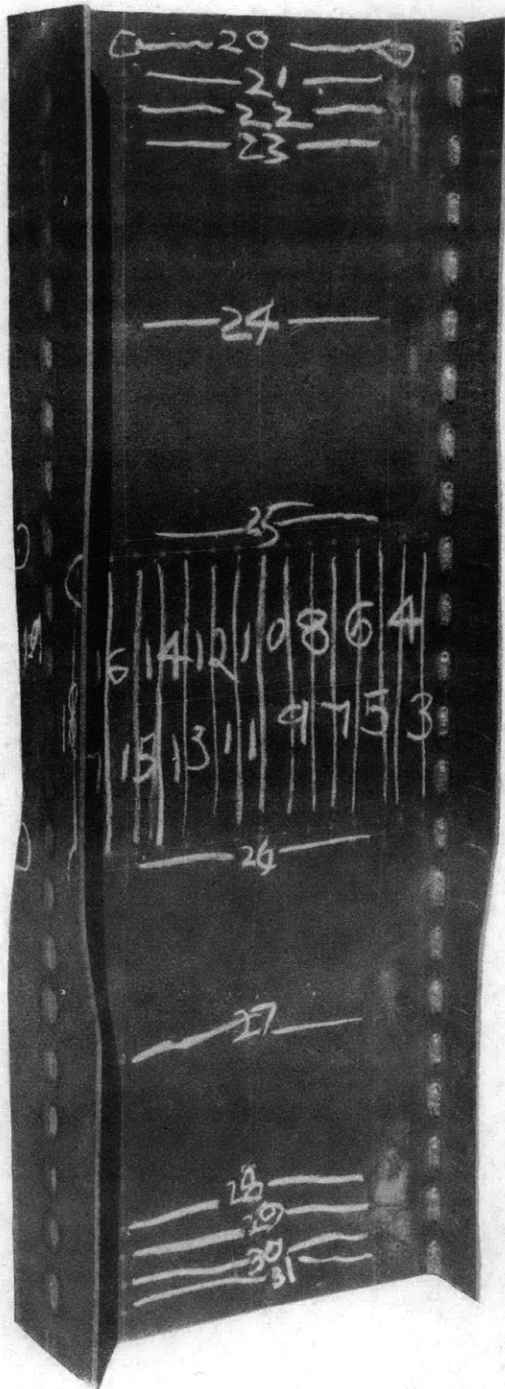 20
21
22
23
24
25
16 14 12 10 8 6 4
15 13 11 9 7 5 3
26
27
28
29
30
31